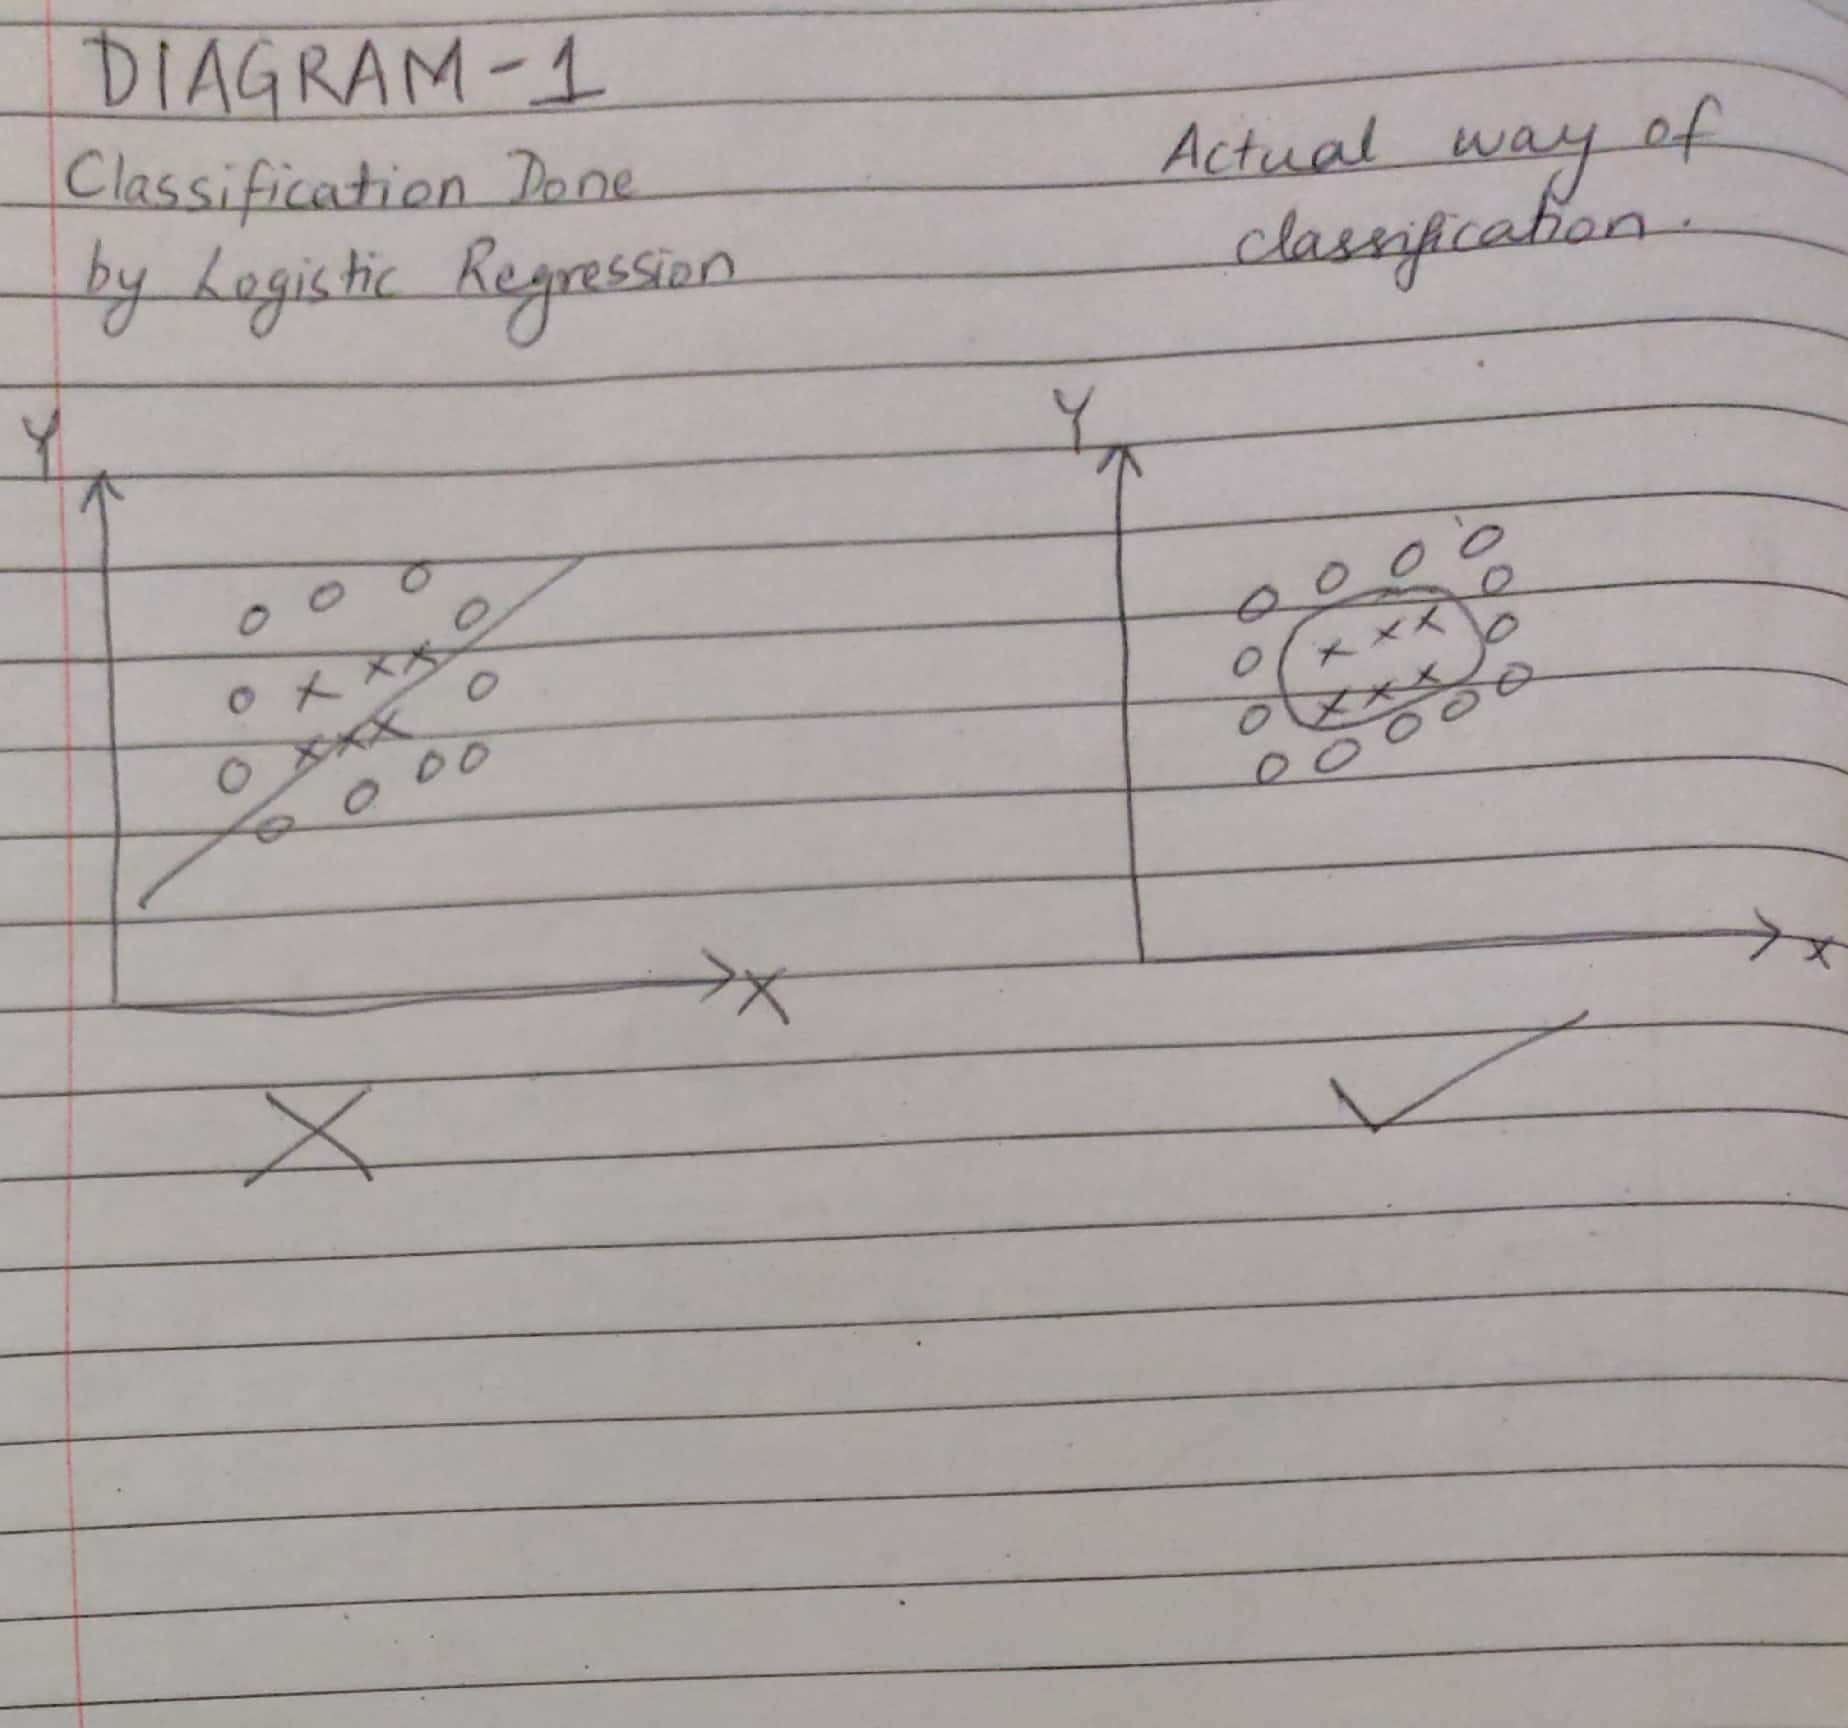 DIAGRAM-1
Classification Done
by Logistic Regression
Actual way of
classification.
Y
X
Y
x